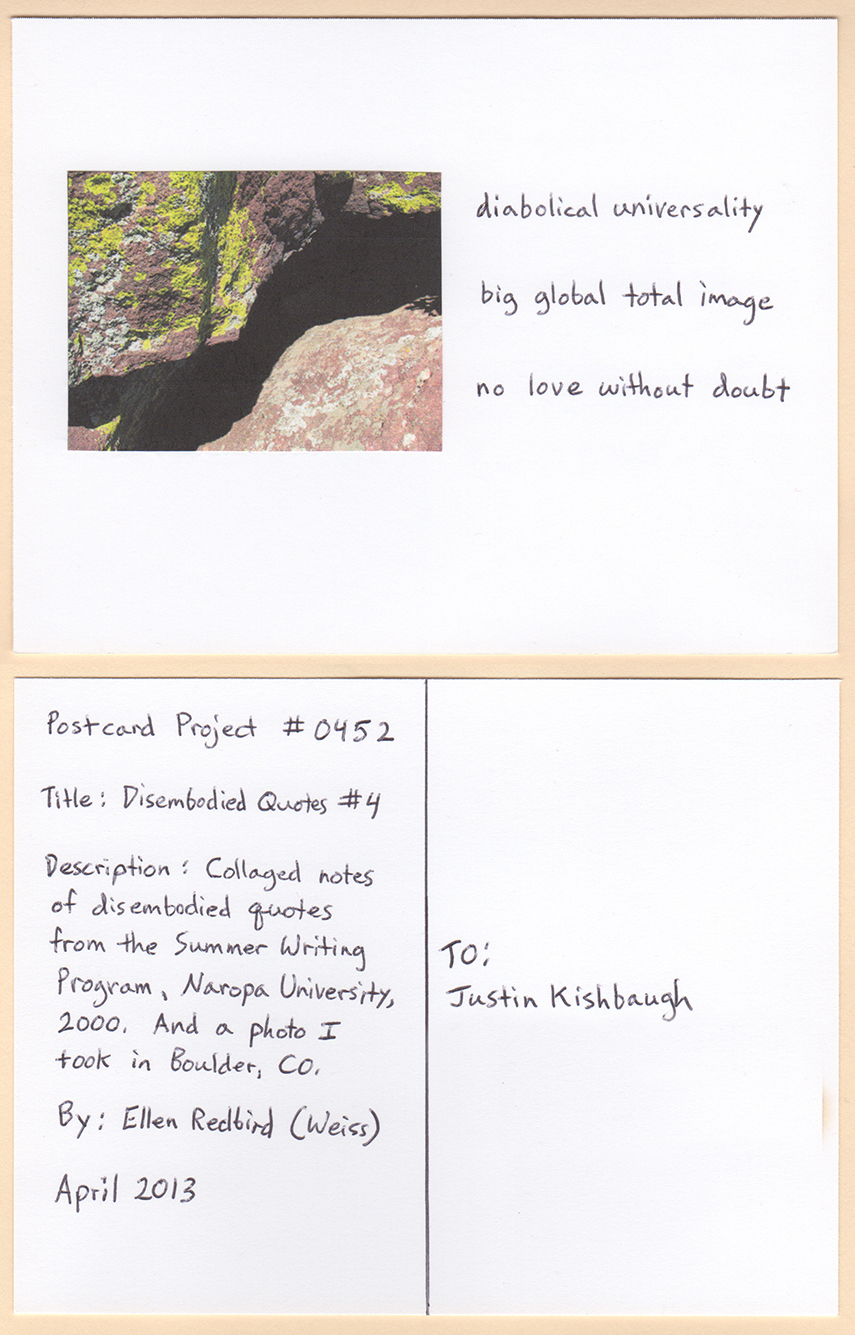 diabolical universality
big global total image
no love without doubt
Postcard Project #0452
Title: Disembodied Quotes #4
Description: Collaged notes
of disembodied quotes
from the Summer Writing
Program, Naropa University,
2000. And a photo I
took in Boulder, CO.
By: Ellen Redbird (Weiss)
April 2013
TO:
Justin Kishbaugh